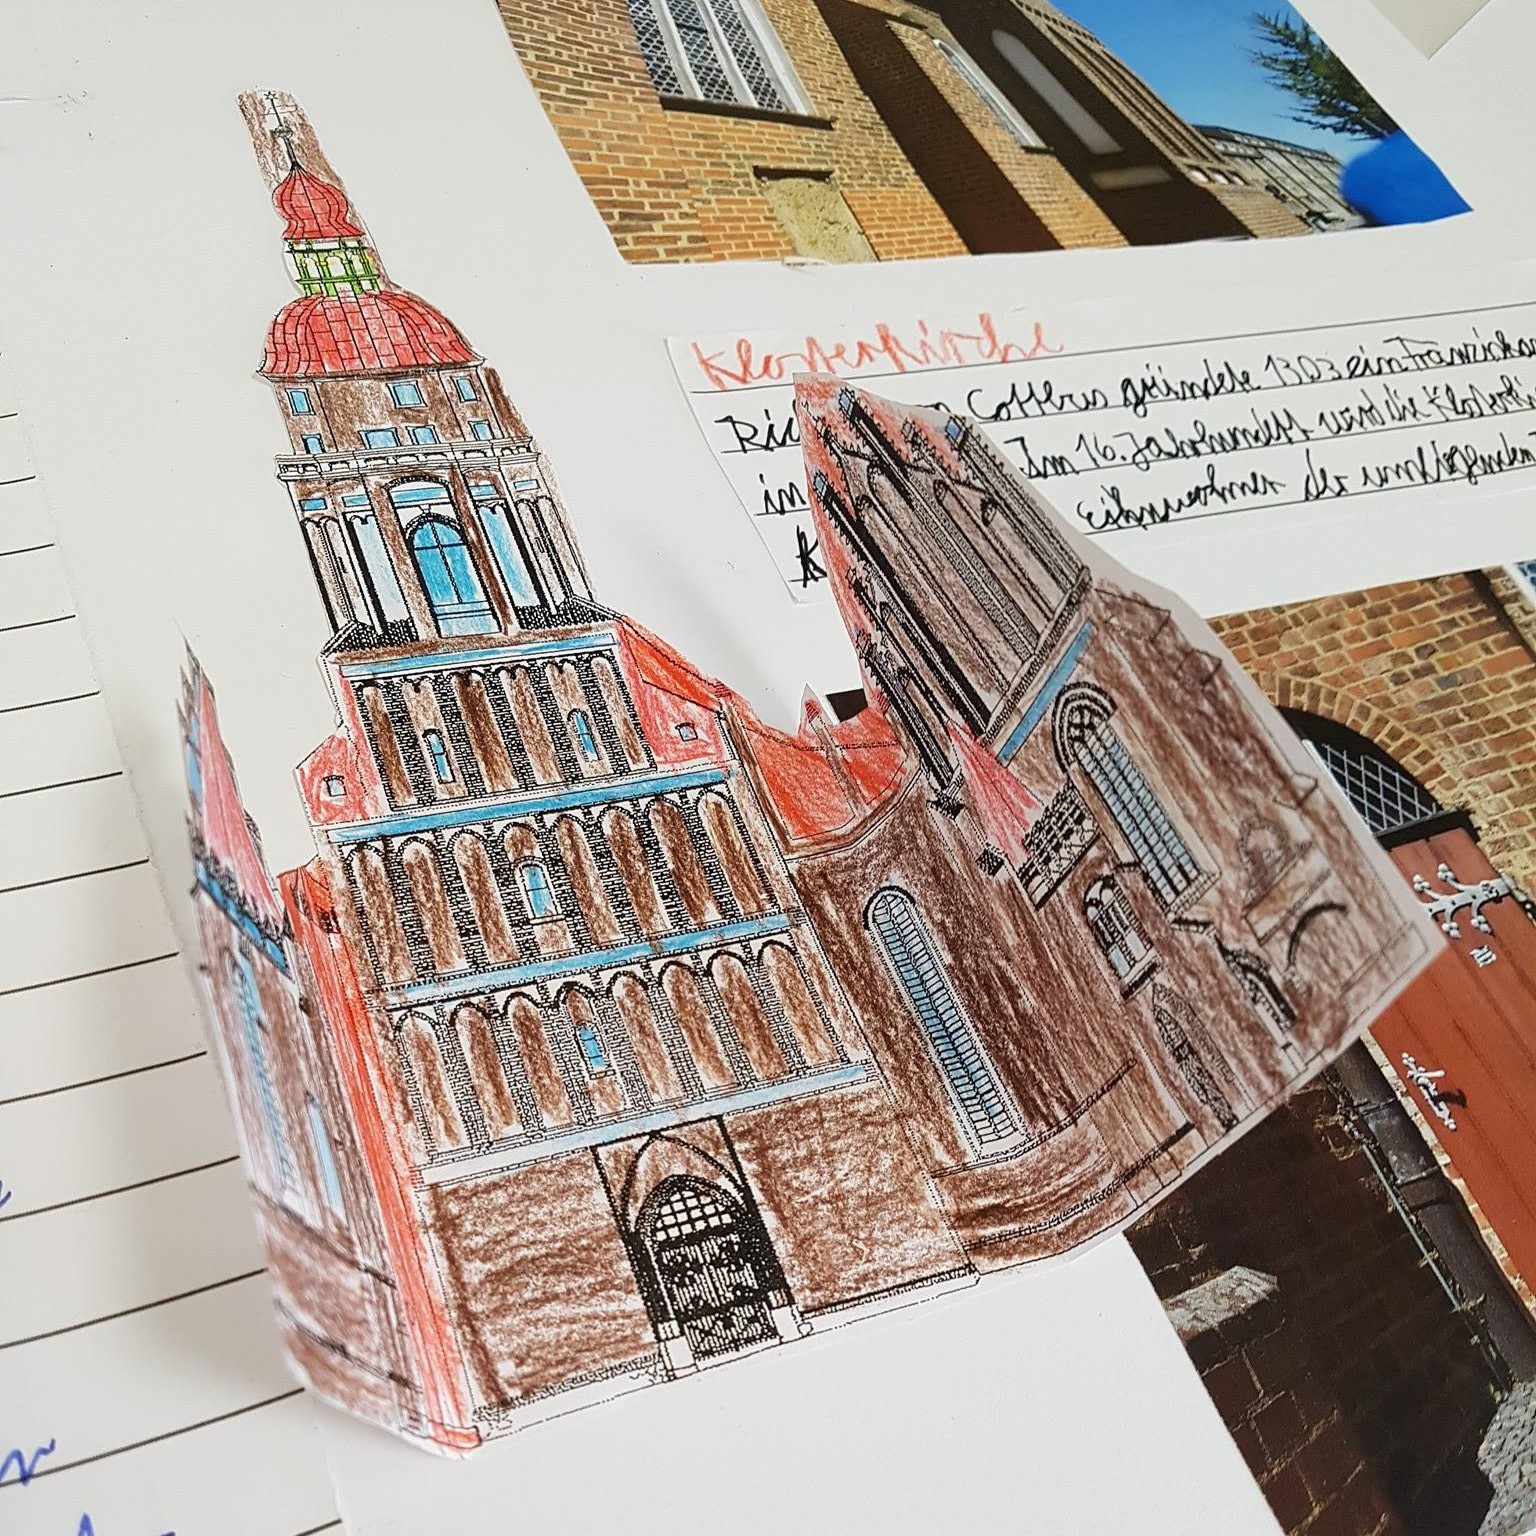 Klosterkirche
Cottbus gründete 1303 ein Franziskan
in Im 16. Jahrhundert wird die Klosterki
K Einwohner der umliegenden